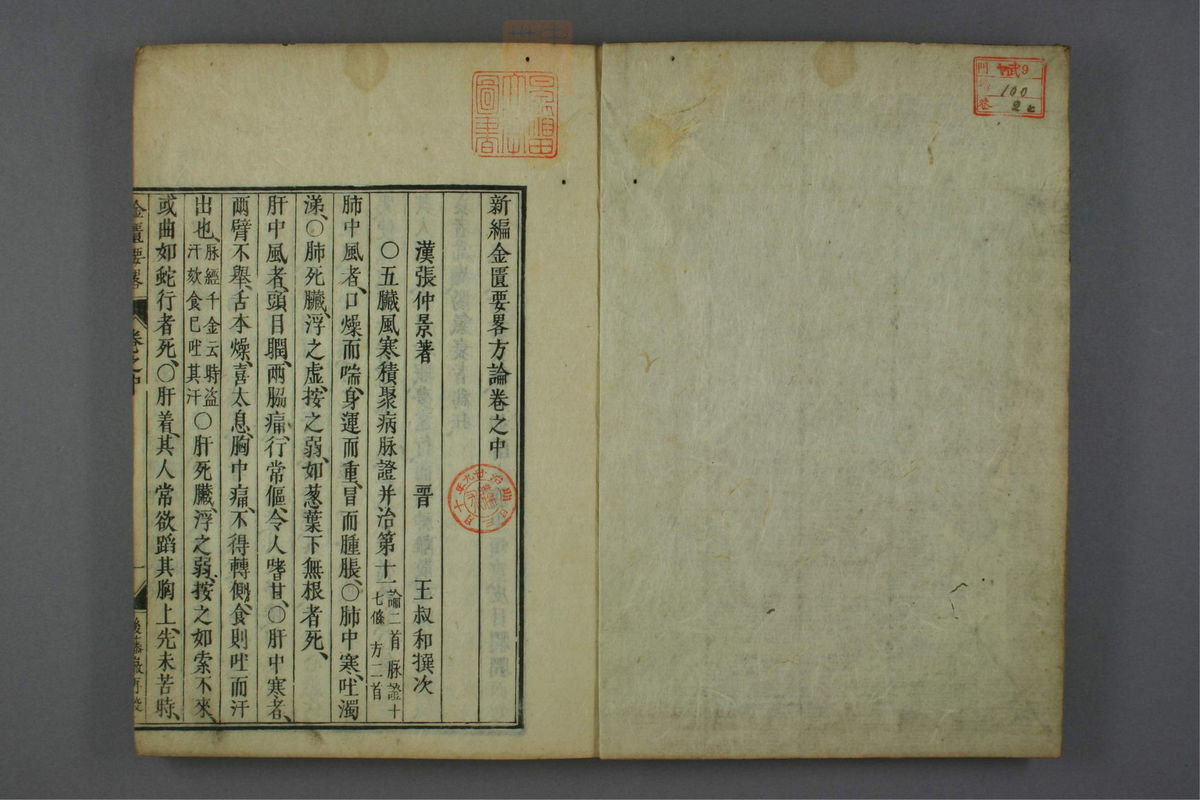 新編金匱要畧方論卷之中
漢張仲景著　晋　王叔和撰次
〇五臟風寒積聚病脉證并治第十一 論二首 脉證十七條 方二首
肺中風者、口燥而喘、身運而重、冒而腫脹、〇肺中寒、吐濁
涕、〇肺死臟、浮之虛、按之弱、如葱葉下無根者死、
肝中風者、頭目瞤、兩脇痛、行常傴、令人嗜甘、〇肝中寒者、
兩臂不舉、舌本燥、喜太息、胸中痛、不得轉側、食則吐而汗
出也、脉經千金云時盗汗欬食已吐其汁〇肝死臟、浮之弱、按之如索不來、
或曲如蛇行者死、〇肝着、其人常欲蹈其胸上、先未苦時、
金匱要畧 卷之中 一
圖書
門 9
100
卷 2